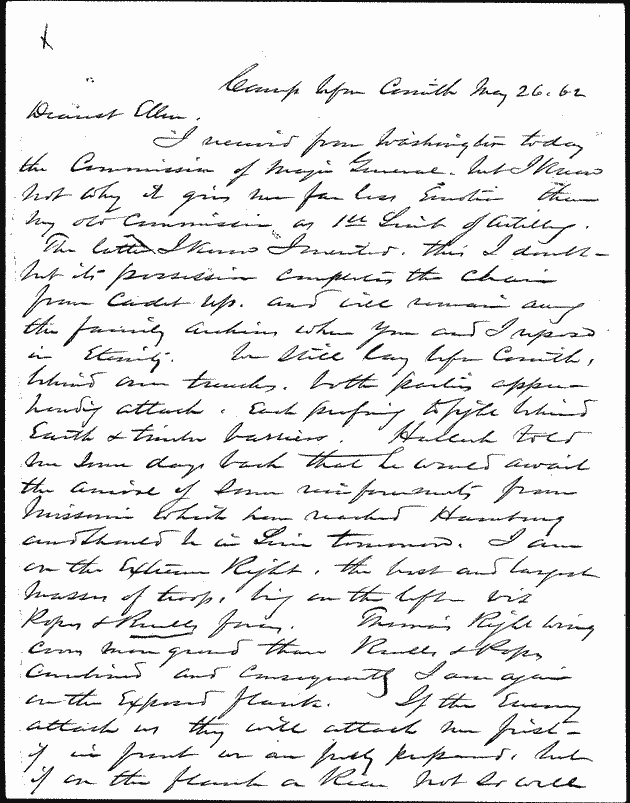 Camp before Corinth May 26. 62
Dearest Ellen.
I received from Washington today
the Commission of Major General. but I know
not why it gives me far less Emotion than
my old Commission as 1st Lieut of Artillery.
The latter I know I merited. this I doubt-
but its possession completes the chain
from Cadet up. and will remain among
the family archives when you and I repose
in Eternity. We still lay before Corinth,
behind our trenches. both parties appre-
hending attack. Each preferring to fight behind
Earth & timber barriers. Halleck told
me Some days back that he would await
the arrival of Some reinforcements from
Missouri which have reached Hamburg
and should be in Line tomorrow. I am
on the Extreme Right. the best and largest
masses of troops, being on the left viz
Popes & Buells forces. Thomas's Right Wing
covers more ground than Buells & Popes
combined and consequently I am again
on the Exposed flank. If the Enemy
attack us they will attack me first-
if in front we are fully prepared, but
if on the flank or Rear not so well